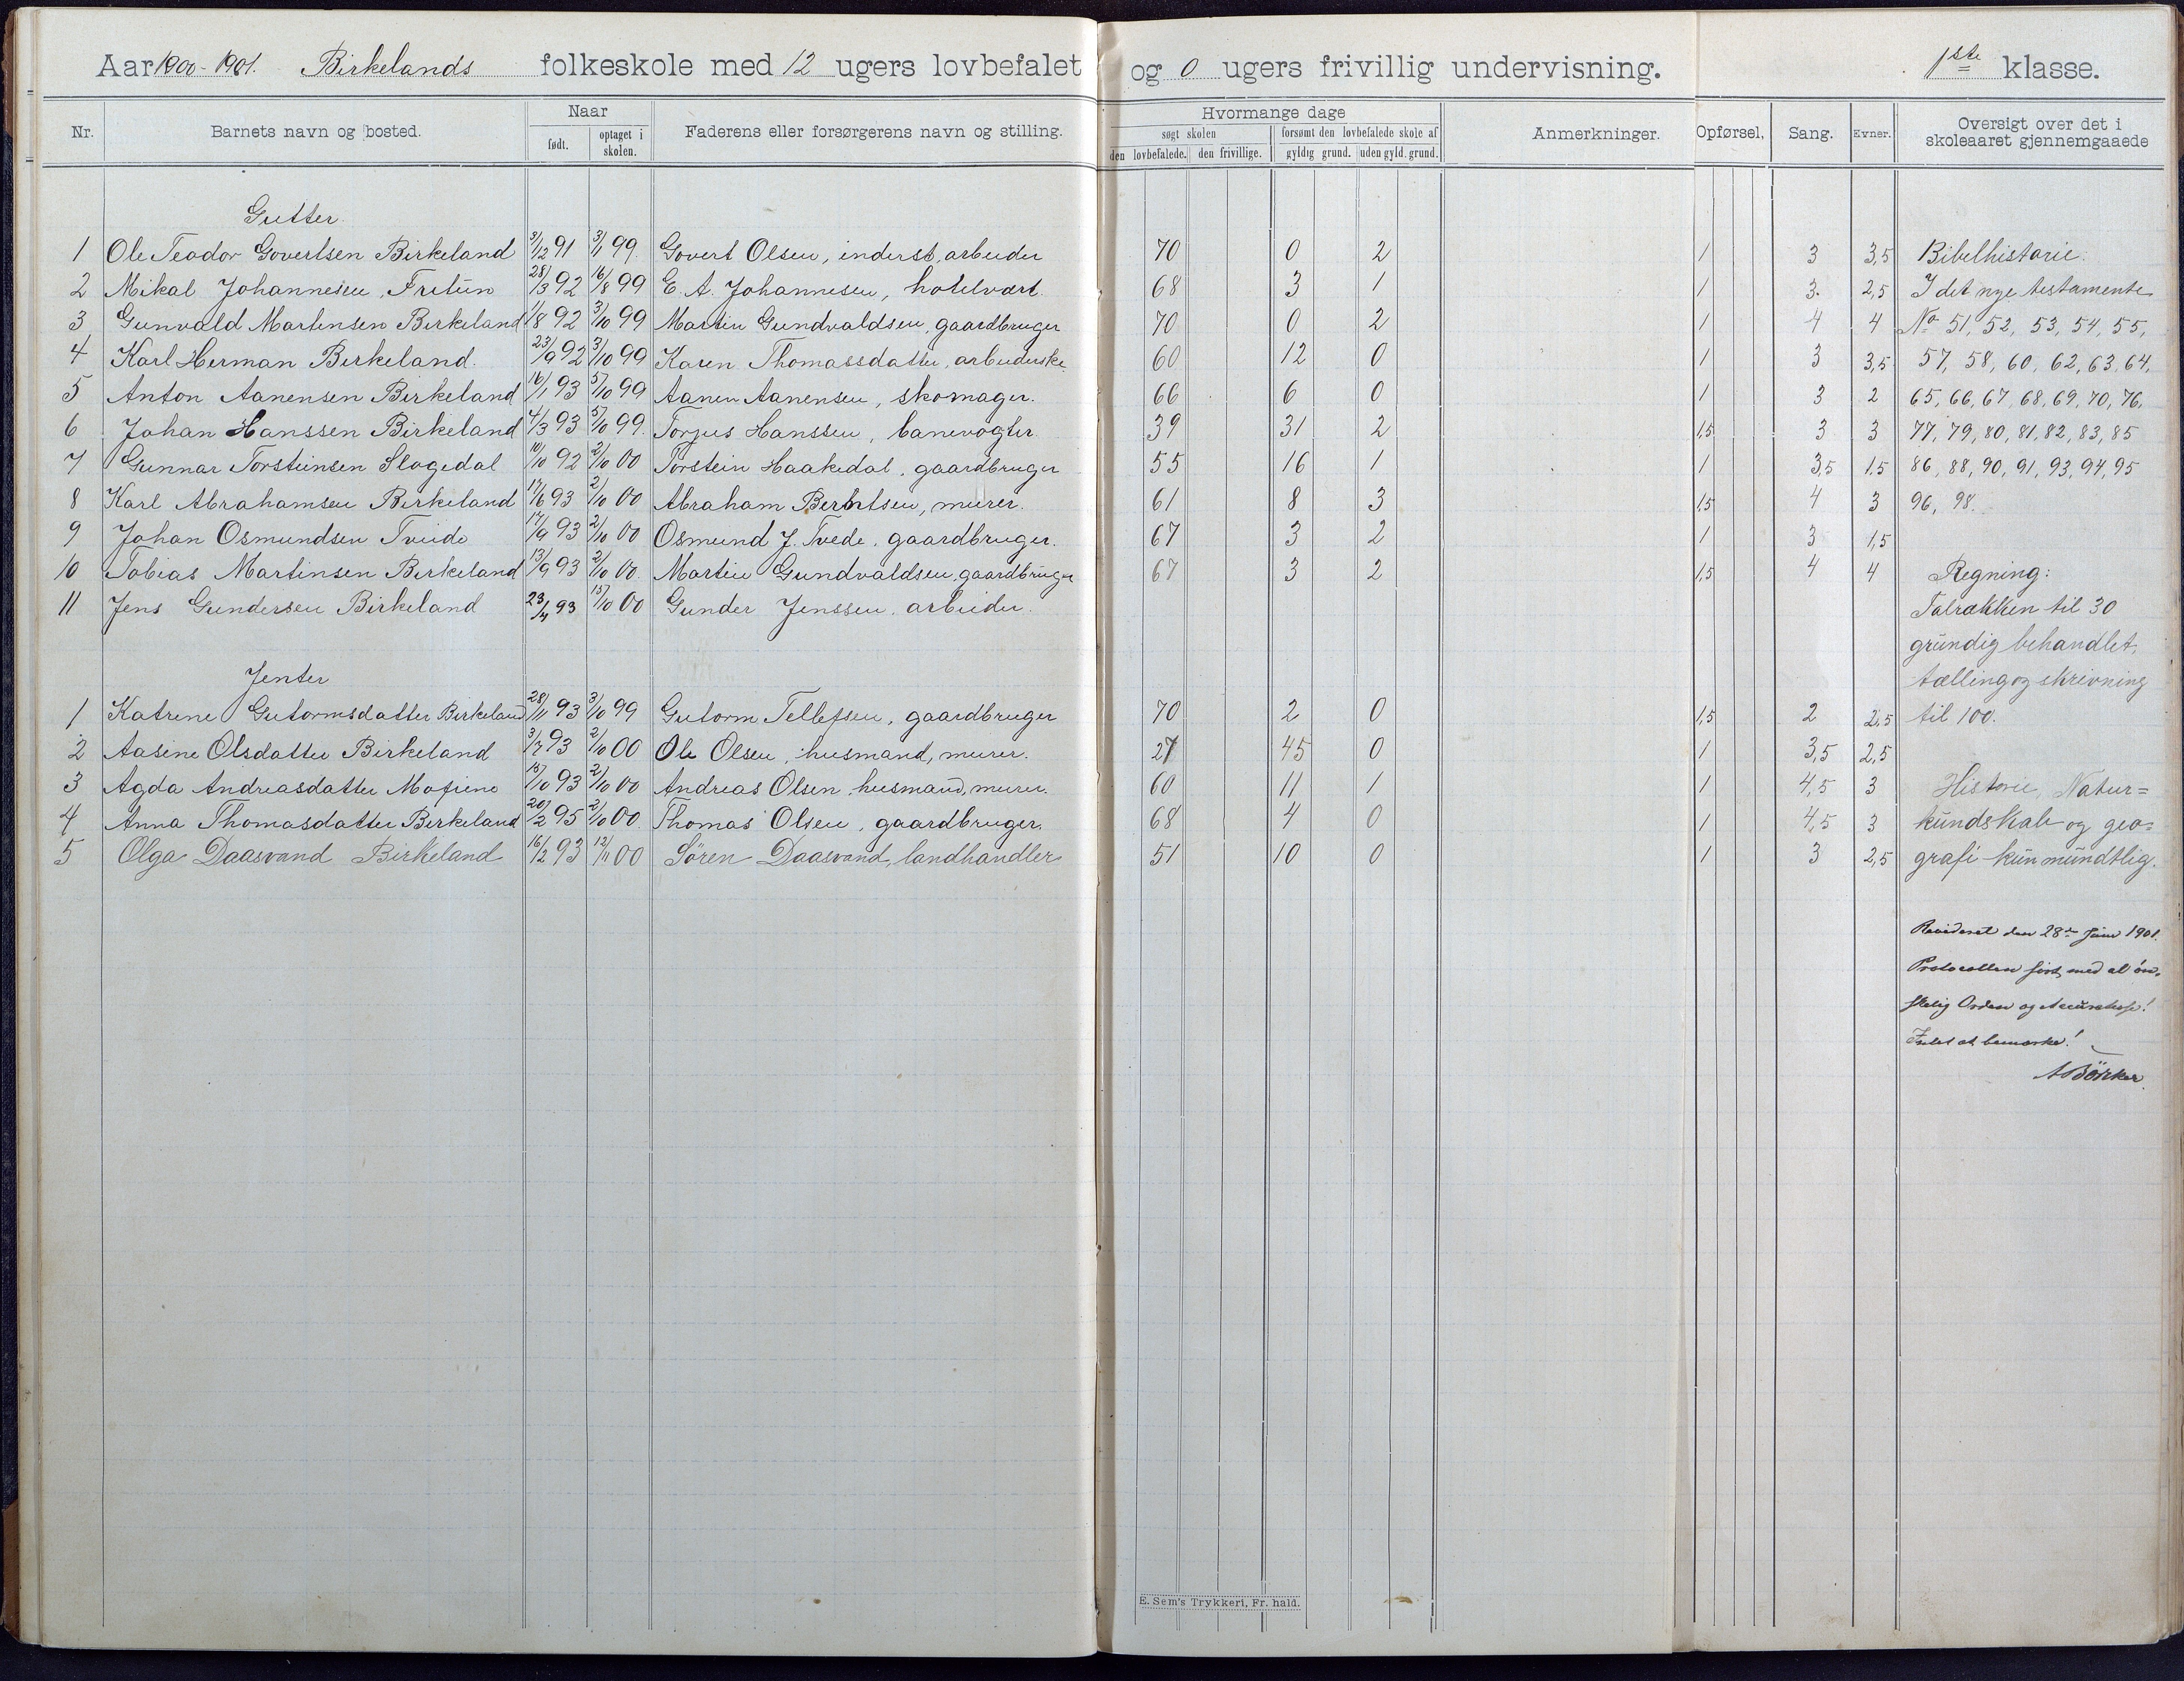 Aar 1900-1901. Birkelands folkeskole med 12 ugers lovbefalet og 0 ugers frivillig undervisning. 1ste klasse.
Nr. Barnets navn og bosted. Naar født. optaget i skolen. Faderens eller forsørgerens navn og stilling. Hvormange dage søgt skolen den lovbefalede. den frivillige. forsømt den lovbefalede skole af gyldig grund. uden gyld. grund. Anmerkninger. Opførsel. Sang. Evner. Oversigt over det i skoleaaret gjennemgaaede
Gutter.
1 Ole Teodor Govertsen Birkeland 3/12 91 3/11 99. Govert Olsen, inderst, arbeider 70 0 2 1 3 3,5 Bibelhistorie.
2 Mikal Johannesen, Fritun 28/3 92 16/8 99 E. A. Johannesen, hotelvært. 68 3 1 1 3. 2,5 I det nye testamente
3 Gunvald Martinsen Birkeland 1/8 92 3/10 99 Martin Gundvaldsen, gaardbruger 70 0 2 1 4 4 No 51, 52, 53, 54, 55,
4 Karl Herman Birkeland. 23/9 92 3/10 99 Karen Thomassdatter, arbeiderske 60 12 0 1 3 3,5 57, 58, 60, 62, 63, 64,
5 Anton Aanensen Birkeland 16/1 93 5/10 99 Aanen Aanensen, skomager. 66 6 0 1 3 2 65, 66, 67, 68, 69, 70, 76,
6 Johan Hanssen Birkeland 4/3 93 5/10 99. Torjus Hanssen, banevogter. 39 31 2 1,5 3 3 77, 79, 80, 81, 82, 83, 85
7 Gunnar Torsteinsen Slogedal 10/10 92 2/10 00 Torstein Haakedal, gaardbruger 55 16 1 1 3,5 1,5 86, 88, 90, 91, 93, 94, 95
8 Karl Abrahamsen Birkeland 17/6 93 2/10 00 Abraham Berntsen, murer. 61 8 3 1,5 4 3 96, 98.
9 Johan Osmundsen Tveide 17/9 93 2/10 00 Osmund J. Tvede, gaardbruger. 67 3 2 1 3 1,5
10 Tobias Martinsen Birkeland 13/9 93 2/10 00. Martin Gundvaldsen, gaardbruger 67 3 2 1,5 4 4 Regning:
11 Jens Gundersen Birkeland 23/4 93 15/10 00 Gunder Jenssen, arbeider. Talrækken til 30
grundig behandlet,
Jenter tælling og skrivning
1 Katrine Gutormsdatter Birkeland 28/11 93 3/10 99 Gutorm Tellefsen, gaardbruger 70 2 0 1,5 2 2,5 til 100.
2 Aasine Olsdatter Birkeland 3/7 93 2/10 00 Ole Olsen, husmand, murer. 27 45 0 1 3,5 2,5
3 Agda Andreasdatter Mofiene 15/10 93 2/10 00 Andreas Olsen, husmand, murer. 60 11 1 1 4,5 3 Historie, Natur=
4 Anna Thomasdatter Birkeland 20/2 95 2/10 00. Thomas Olsen, gaardbruger. 68 4 0 1 4,5 3 kundskab og geo=
5 Olga Daasvand Birkeland 16/2 93 12/11 00 Sören Daasvand, landhandler 51 10 0 1 3 2,5 grafi kun mundtlig.
Revideret den 28de Juni 1901.
Protocollen ført med al øn-
skelig Orden og !
Intet at bemærke!
Börker
E. Sem's Trykkeri, Fr. hald.